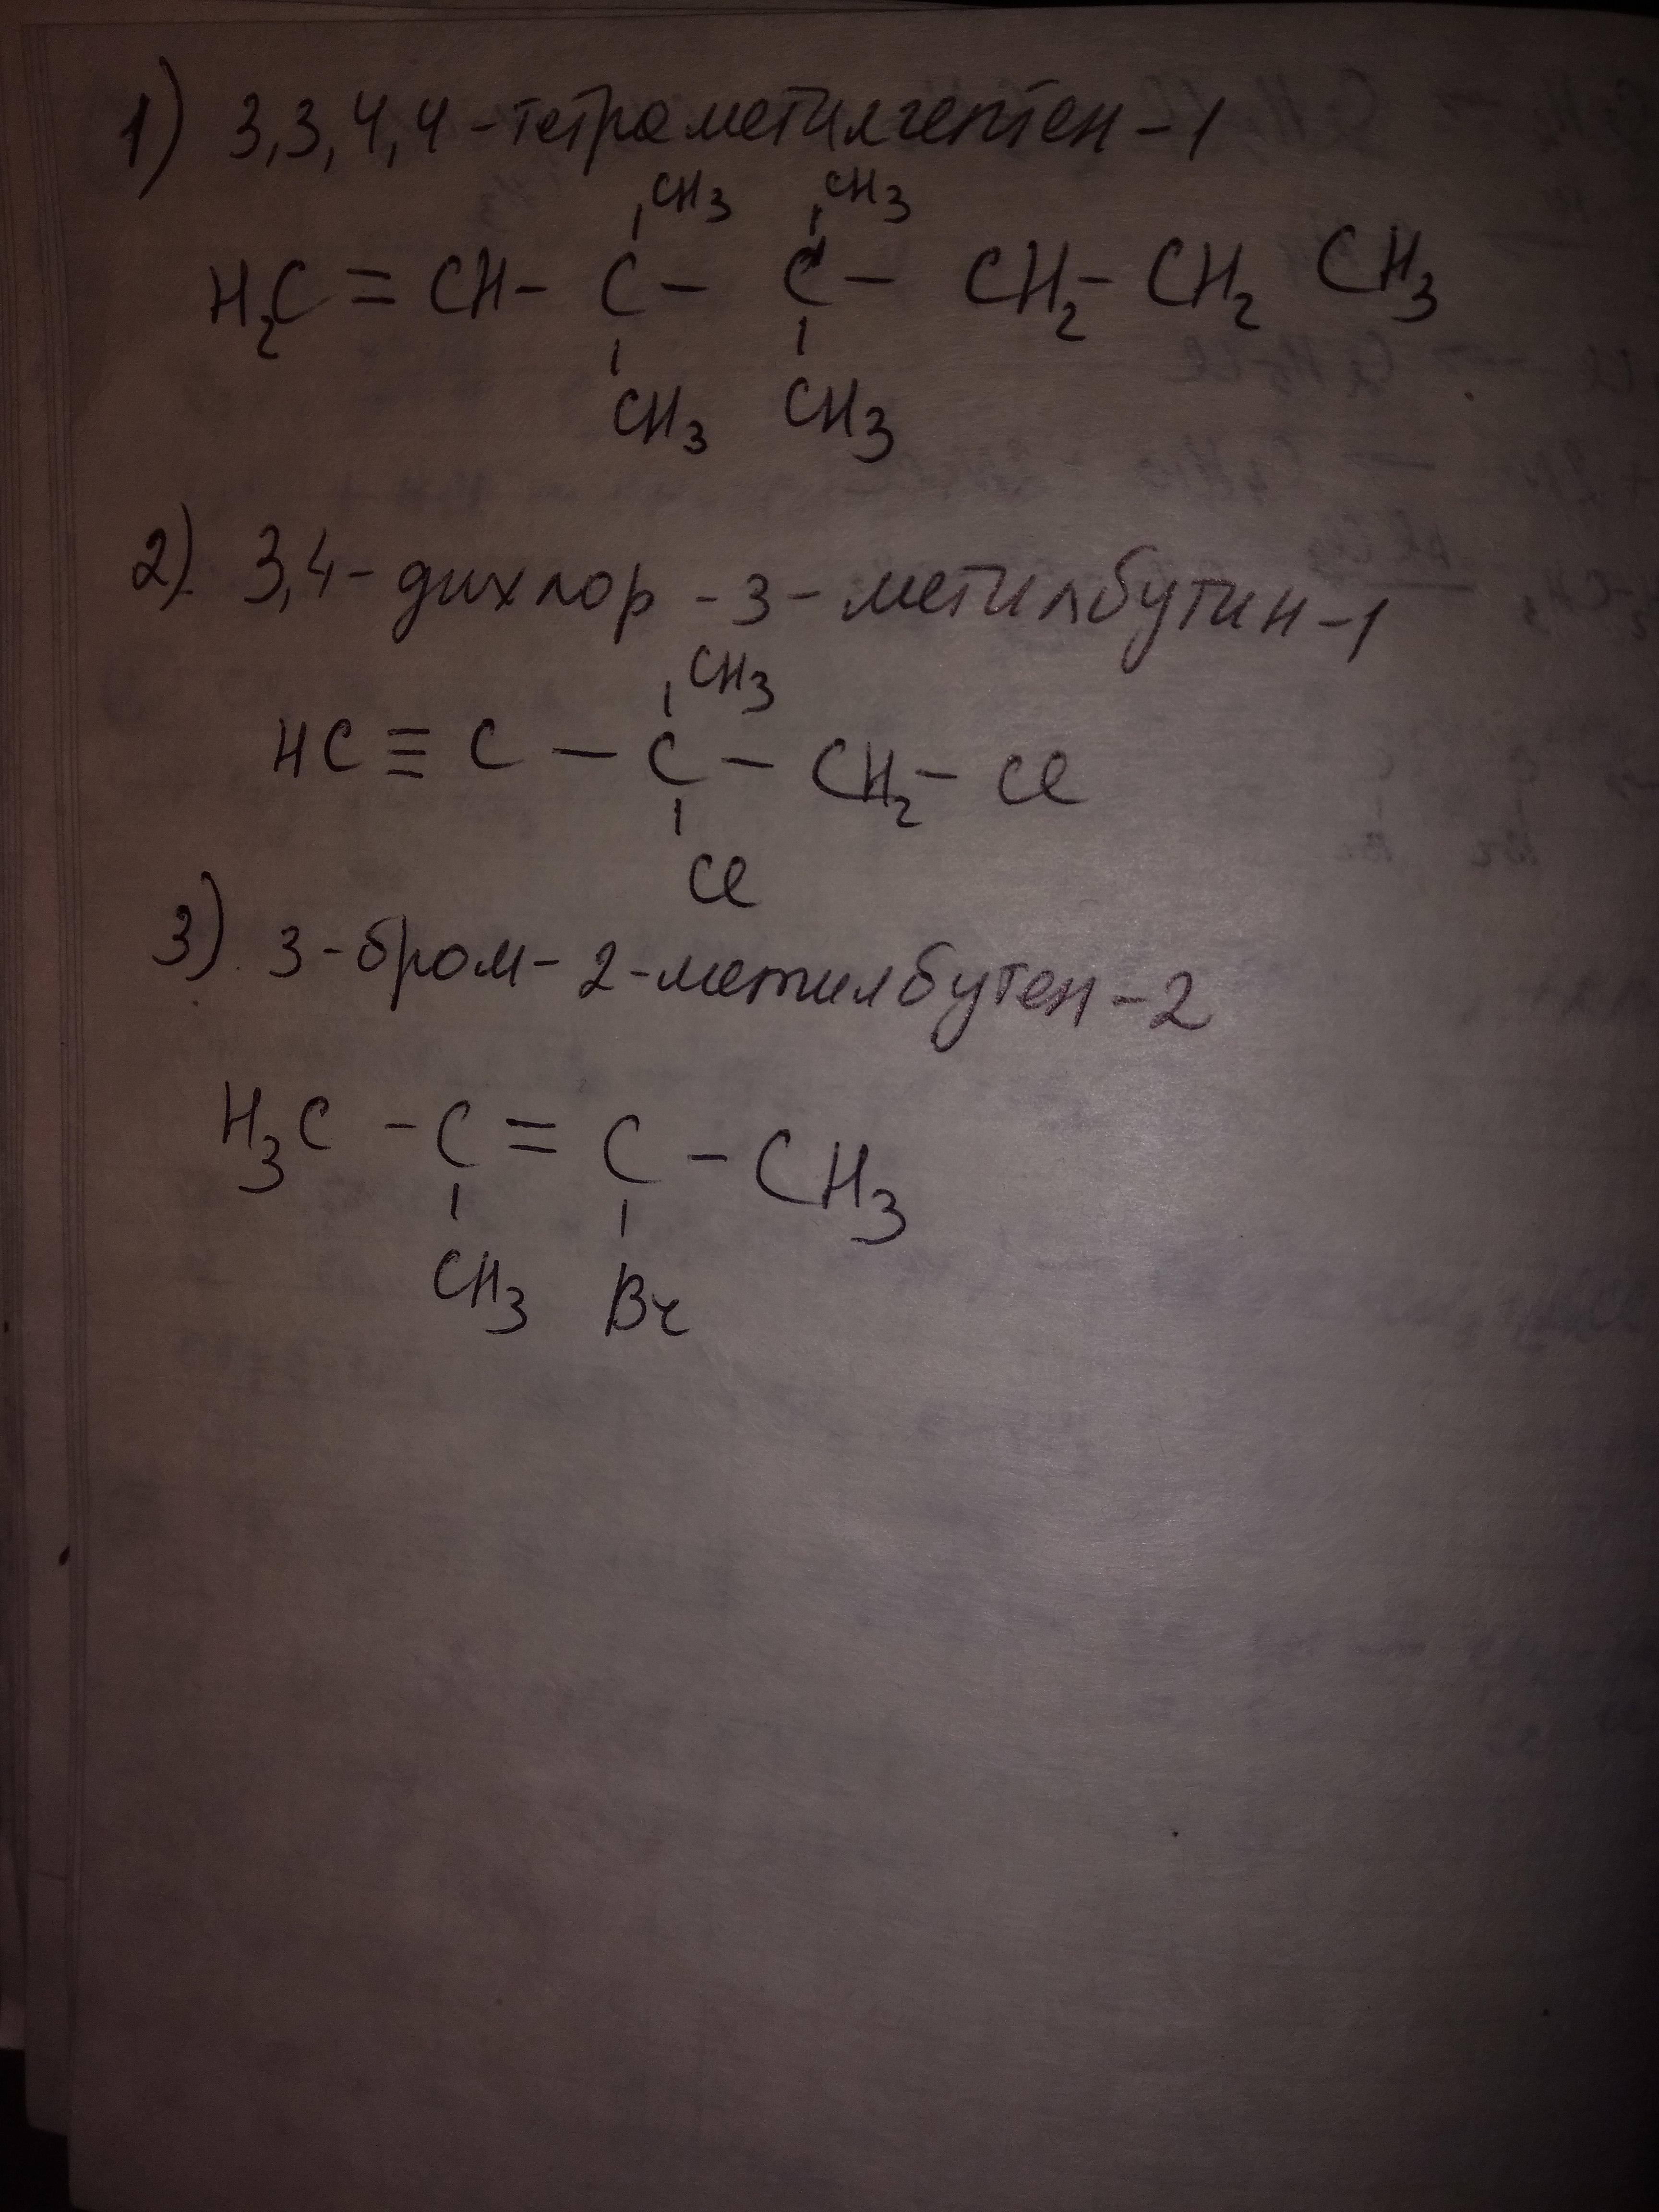 1) 3,3,4,4-тетраметилгептен-1
CH3 CH3
H2C = CH - C - C - CH2 - CH2 CH3
CH3 CH3
2). 3,4-дихлор-3-метилбутин-1
CH3
HC ≡ C - C - CH2 - Cl
Cl
3). 3-бром-2-метилбутен-2
H3C - C = C - CH3
CH3 Br